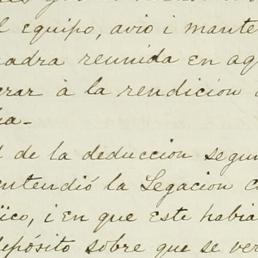 l equipo, avio i mante
adra reunida en aq
rar à la rendicion
ia-
l de la deduccion segun
entendió la Legacion c
ico, i en que este habia
depósito sobre que se ver